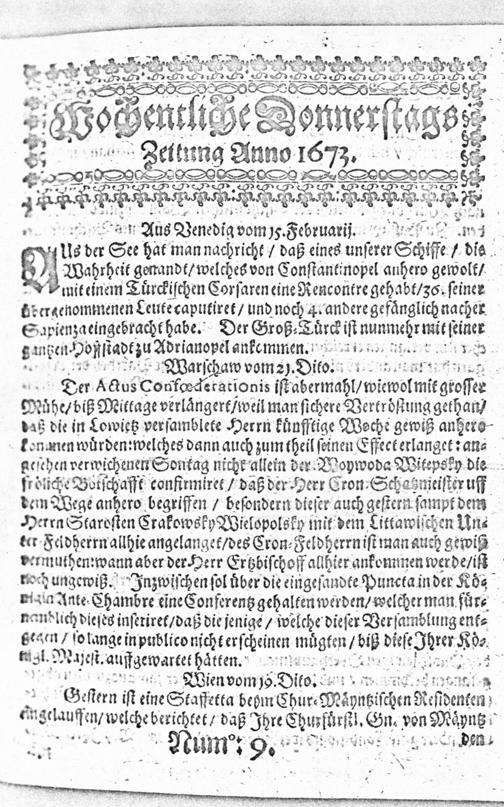 Wochentliche Donnerstags
Zeitung Anno 1673.
Aus Venedig vom 15. Februarij.
AUs der See hat man nachricht / daß eines unserer Schiffe / die
Wahrheit genandt / welches von Constantinopel anhero gewolt /
mit einem Türckischen Corsaren eine Rencontre gehabt / 36. seiner
übergenommenen Leute caputiret / und noch 4. andere gefänglich nacher
Sapienza eingebracht habe. Der Groß-Türck ist nunmehr mit seiner
gantzen Hoffstadt zu Adrianopel ankommen.
Warschaw vom 21. Dito.
Der Actus Confœderationis ist abermahl / wiewol mit grosser
Mühe / biß Mittage verlängert / weil man sichere Vertröstung gethan /
daß die in Lowietz versamblete Herrn künfftige Woche gewiß anhero
kommen würden: welches dann auch zum theil seinen Effect erlanget: an-
gesehen verwichenen Sontag nicht allein der Woywoda Witepsky die
fröliche Botschafft confirmiret / daß der Herr Cron-Schatzmeister uff
dem Wege anhero begriffen / besondern dieser auch gestern sampt dem
Herrn Starosten Crakowsky Wielopolsky mit dem Littawischen Un-
ter-Feldherrn allhie angelanget / des Cron-Feldherrn ist man auch gewiß
vermuthen: wann aber der Herr Ertzbischoff allhier ankommen werde / ist
noch ungewiß. Inzwischen sol über die eingesandte Puncta in der Kö-
nigin Ante-Chambre eine Conferentz gehalten werden / welcher man für-
nemblich dieses inseriret / daß die jenige / welche dieser Versamblung ent-
gegen / so lange in publico nicht erscheinen mügten / biß diese Ihrer Kö-
nigl. Majest. auffgewartet hätten.
Wien vom 19. Dito.
Gestern ist eine Staffetta beym Chur-Mäyntzischen Residenten
eingelauffen / welche berichtet / daß Ihre Churfürstl. Gn. von Mäyntz
den
Num°: 9.